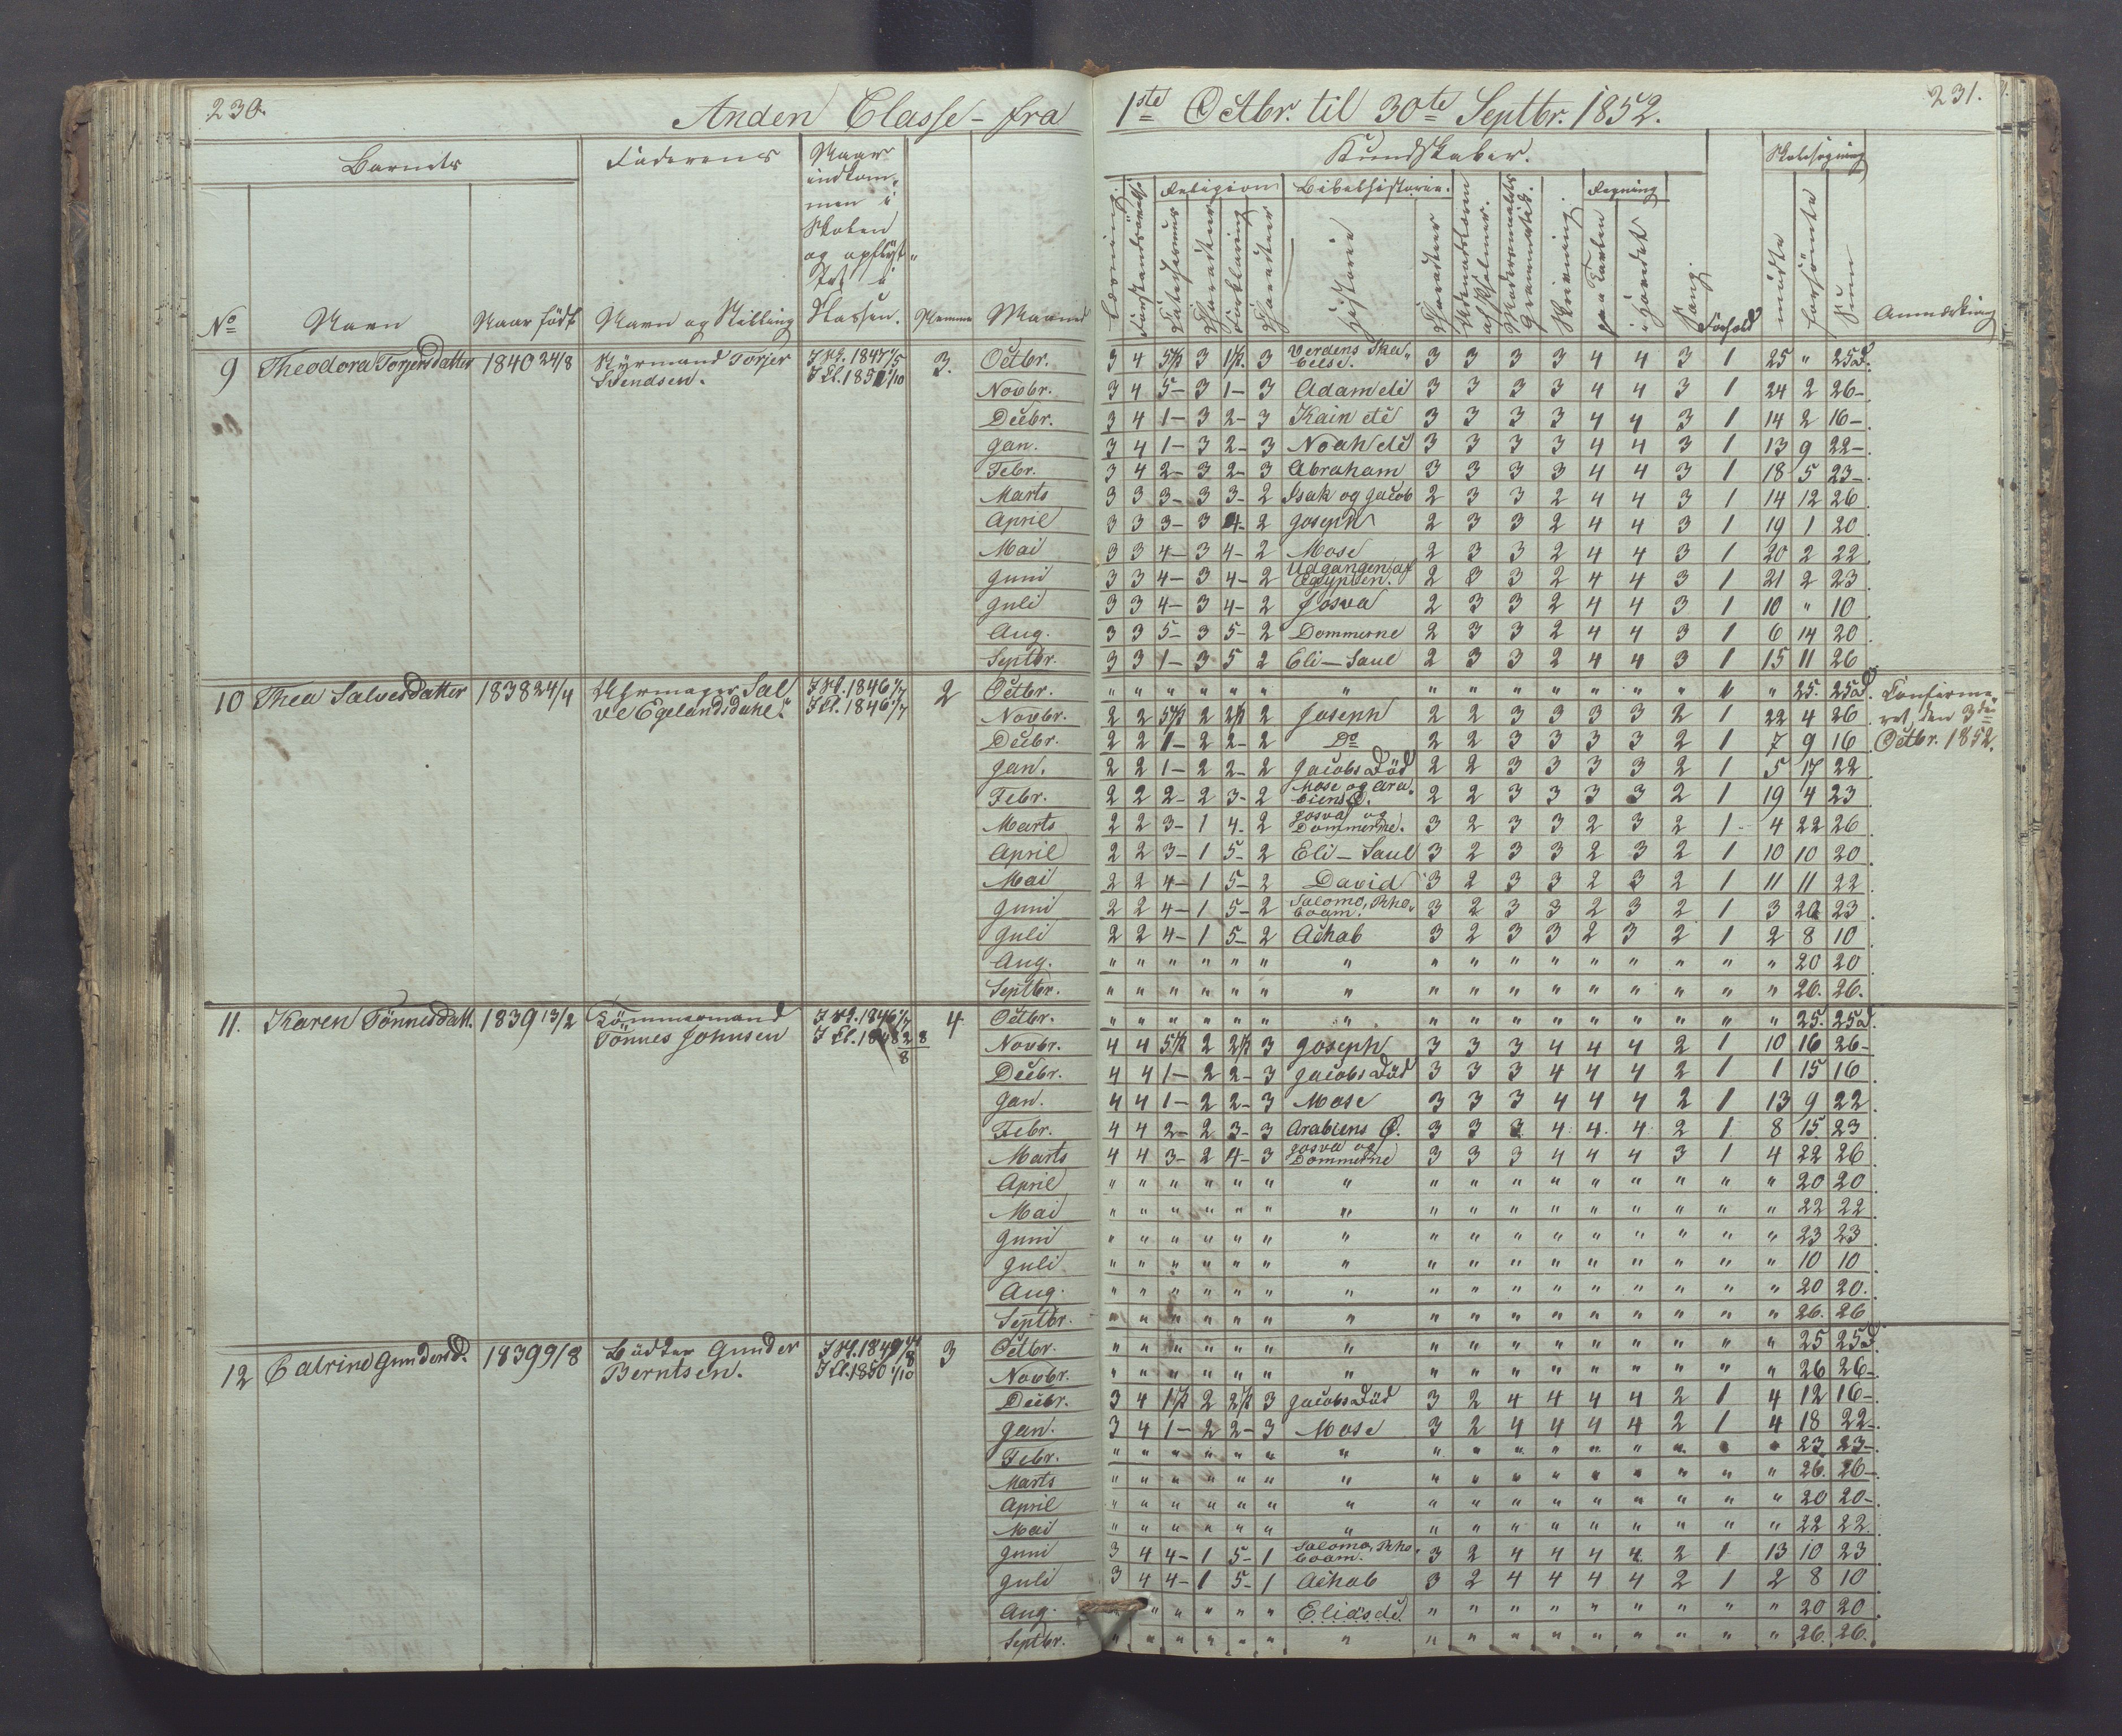 230.
Anden Classe - fra
1ste Octbr. til 30te Septbr. 1852.
231.
Barnets
Faderens
Naar
indkom-
men i
Skolen
og opflyt-
tet i
Klassen.
Kundskaber.
Skolesøgning
Religion
Bibelhistorie.
Regning
No
Navn
Naar født
Navn og Stilling
Maaned
Læsning.
Forstandsøvels.
Catechismus
Charakteer
Forklaring
Charakteer
Historie
Charakteer
Udenadlæsn
af Psalmer.
Modersmaalets
Grammatik.
Skrivning.
paa Tavlen
i Hovedet
Sang.
Forhold
mødte
forsømte
Sum
Anmærkning
9 Theodora Torjersdatter 1840 24/8 Styrmand Torjer 3. Octbr. 3 4 5 3 1 3 Verdens Ska- 3 3 3 3 4 4 3 1 25 " 25d.
Bendsen. belse.
Novbr. 3 4 5- 3 1- 3 Adam etc 3 3 3 3 4 4 3 1 24 2 26-
Decbr. 3 4 1- 3 2- 3 Kain etc 3 3 3 3 4 4 3 1 14 2 16-
Jan. 3 4 1- 3 2- 3 Noah etc 3 3 3 3 4 4 3 1 13 9 22-
Febr. 3 4 2- 3 2- 3 Abraham 3 3 3 3 4 4 3 1 18 5 23-
Marts 3 3 3- 3 3- 2 Isak og Jacob 2 3 3 2 4 4 3 1 14 12 26
April 3 3 3- 3 4- 2 Joseph 2 3 3 2 4 4 3 1 19 1 20
Mai 3 3 4- 3 4- 2 Mose 2 3 3 2 4 4 3 1 20 2 22
Juni 3 3 4- 3 4- 2 Udgangen af Egypten. 2 3 3 2 4 4 3 1 21 2 23
Juli 3 3 4- 3 4- 2 Josva 2 3 3 2 4 4 3 1 10 " 10
Aug. 3 3 5- 3 5- 2 Dommerne 2 3 3 2 4 4 3 1 6 14 20
Septbr. 3 3 1- 3 5 2 Eli - Saul 2 3 3 2 4 4 3 1 15 11 26
10 Thea Salvesdatter 1838 24/4 Uhrmager Sal- I Sk. 1846 1/7 2 Octbr. " " " " " " " " " " " " " " " " 25. 25d. Confirme-
ve Egelandsdahl. I Cl. 1846 1/7 Novbr. 2 2 5 2 2 2 Joseph 2 2 3 3 3 3 2 1 22 4 26 ret, den 3die
Decbr. 2 2 1- 2 2- 2 Do 2 2 3 3 3 3 2 1 7 9 16 Octbr. 1852.
Jan. 2 2 1- 2 2- 2 Jacobs Død 2 2 3 3 3 3 2 1 5 17 22
Febr. 2 2 2- 2 3- 2 Mose og Ara- biens Ø. 2 2 3 3 3 3 2 1 19 4 23
Marts 2 2 3- 1 4- 2 Josva og Dommerne. 3 2 3 3 2 3 2 1 4 22 26
April 2 2 3- 1 5- 2 Eli - Saul 3 2 3 3 2 3 2 1 10 10 20
Mai 2 2 4- 1 5- 2 David 3 2 3 3 2 3 2 1 11 11 22
Juni 2 2 4- 1 5- 2 Salomo, Rho- boam. 3 2 3 3 2 3 2 1 3 20 23
Juli 2 2 4- 1 5- 2 Achab 3 2 3 3 2 3 2 1 2 8 10
Aug. " " " " " " " " " " " " " " " " 20 20
Septbr. " " " " " " " " " " " " " " " " 26. 26.
11. Karen Tönnesdatt. 1839 13/2 Tømmermand I Sk. 1846 1/7 4 Octbr. " " " " " " " " " " " " " " " " 25. 25d.
Tönnes Johnsen I Cl. 1848 28/8 Novbr. 4 4 5 2 2 3 Joseph 3 3 3 4 4 4 2 1 10 16 26-
Decbr. 4 4 1- 2 2- 3 Jacobs Død 3 3 3 4 4 4 2 1 1 15 16
Jan. 4 4 1- 2 2- 3 Mose 3 3 3 4 4 4 2 1 13 9 22
Febr. 4 4 2- 2 3- 3 Arabiens Ø. 3 3 3 4 4 4 2 1 8 15 23
Marts 4 4 3- 2 4- 3 Josva og Dommerne 3 3 3 4 4 4 3 1 4 22 26
April " " " " " " " " " " " " " " " " 20 20
Mai " " " " " " " " " " " " " " " " 22 22
Juni " " " " " " " " " " " " " " " " 23 23
Juli " " " " " " " " " " " " " " " " 10 10
Aug. " " " " " " " " " " " " " " " " 20 20.
Septbr. " " " " " " " " " " " " " " " " 26. 26
12 Catrine Gundersd. 1839 9/8 Bødker Gunder 3 Octbr. " " " " " " " " " " " " " " " " 25 25d.
Berntsen. I Cl. 1850 1/10 Novbr. " " " " " " " " " " " " " " " " 26 26-
Decbr. 3 4 1 2 2 3 Jacobs Død 3 2 4 4 4 4 2 1 4 12 16-
Jan. 3 4 1- 2 2- 3 Mose 3 2 4 4 4 4 2 1 4 18 22-
Febr. " " " " " " " " " " " " " " " " 23 23-
Marts " " " " " " " " " " " " " " " " 26. 26-
April " " " " " " " " " " " " " " " " 20 20-
Mai " " " " " " " " " " " " " " " " 22 22.
Juni 3 4 4- 1 5- 1 Salomo, Rho- boam. 3 2 4 4 4 4 2 1 13 10 23
Juli 3 4 4- 1 5- 1 Achab 3 2 4 4 4 4 2 1 2 8 10
Aug. " " " " " Elias etc " " " " " " " " " 20 20
Septbr. " " " " " " " " " " " " " " " " 26. 26.